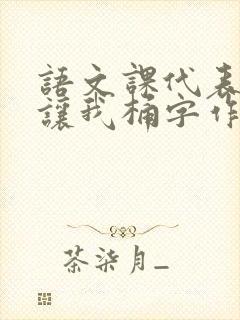 語文課代表
讓我桶字作
茶柒月_